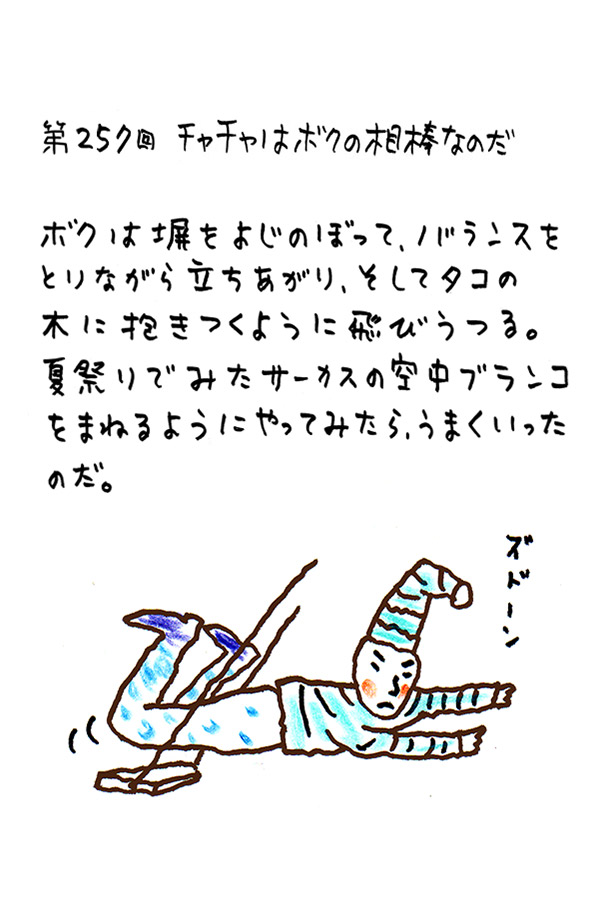 第257回 チャチャはボクの相棒なのだ
ボクは塀をよじのぼって、バランスを
とりながら立ちあがり、そしてタコの
木に抱きつくように飛びうつる。
夏祭りでみたサーカスの空中ブランコ
をまねるようにやってみたら、うまくいった
のだ。
ズドーン